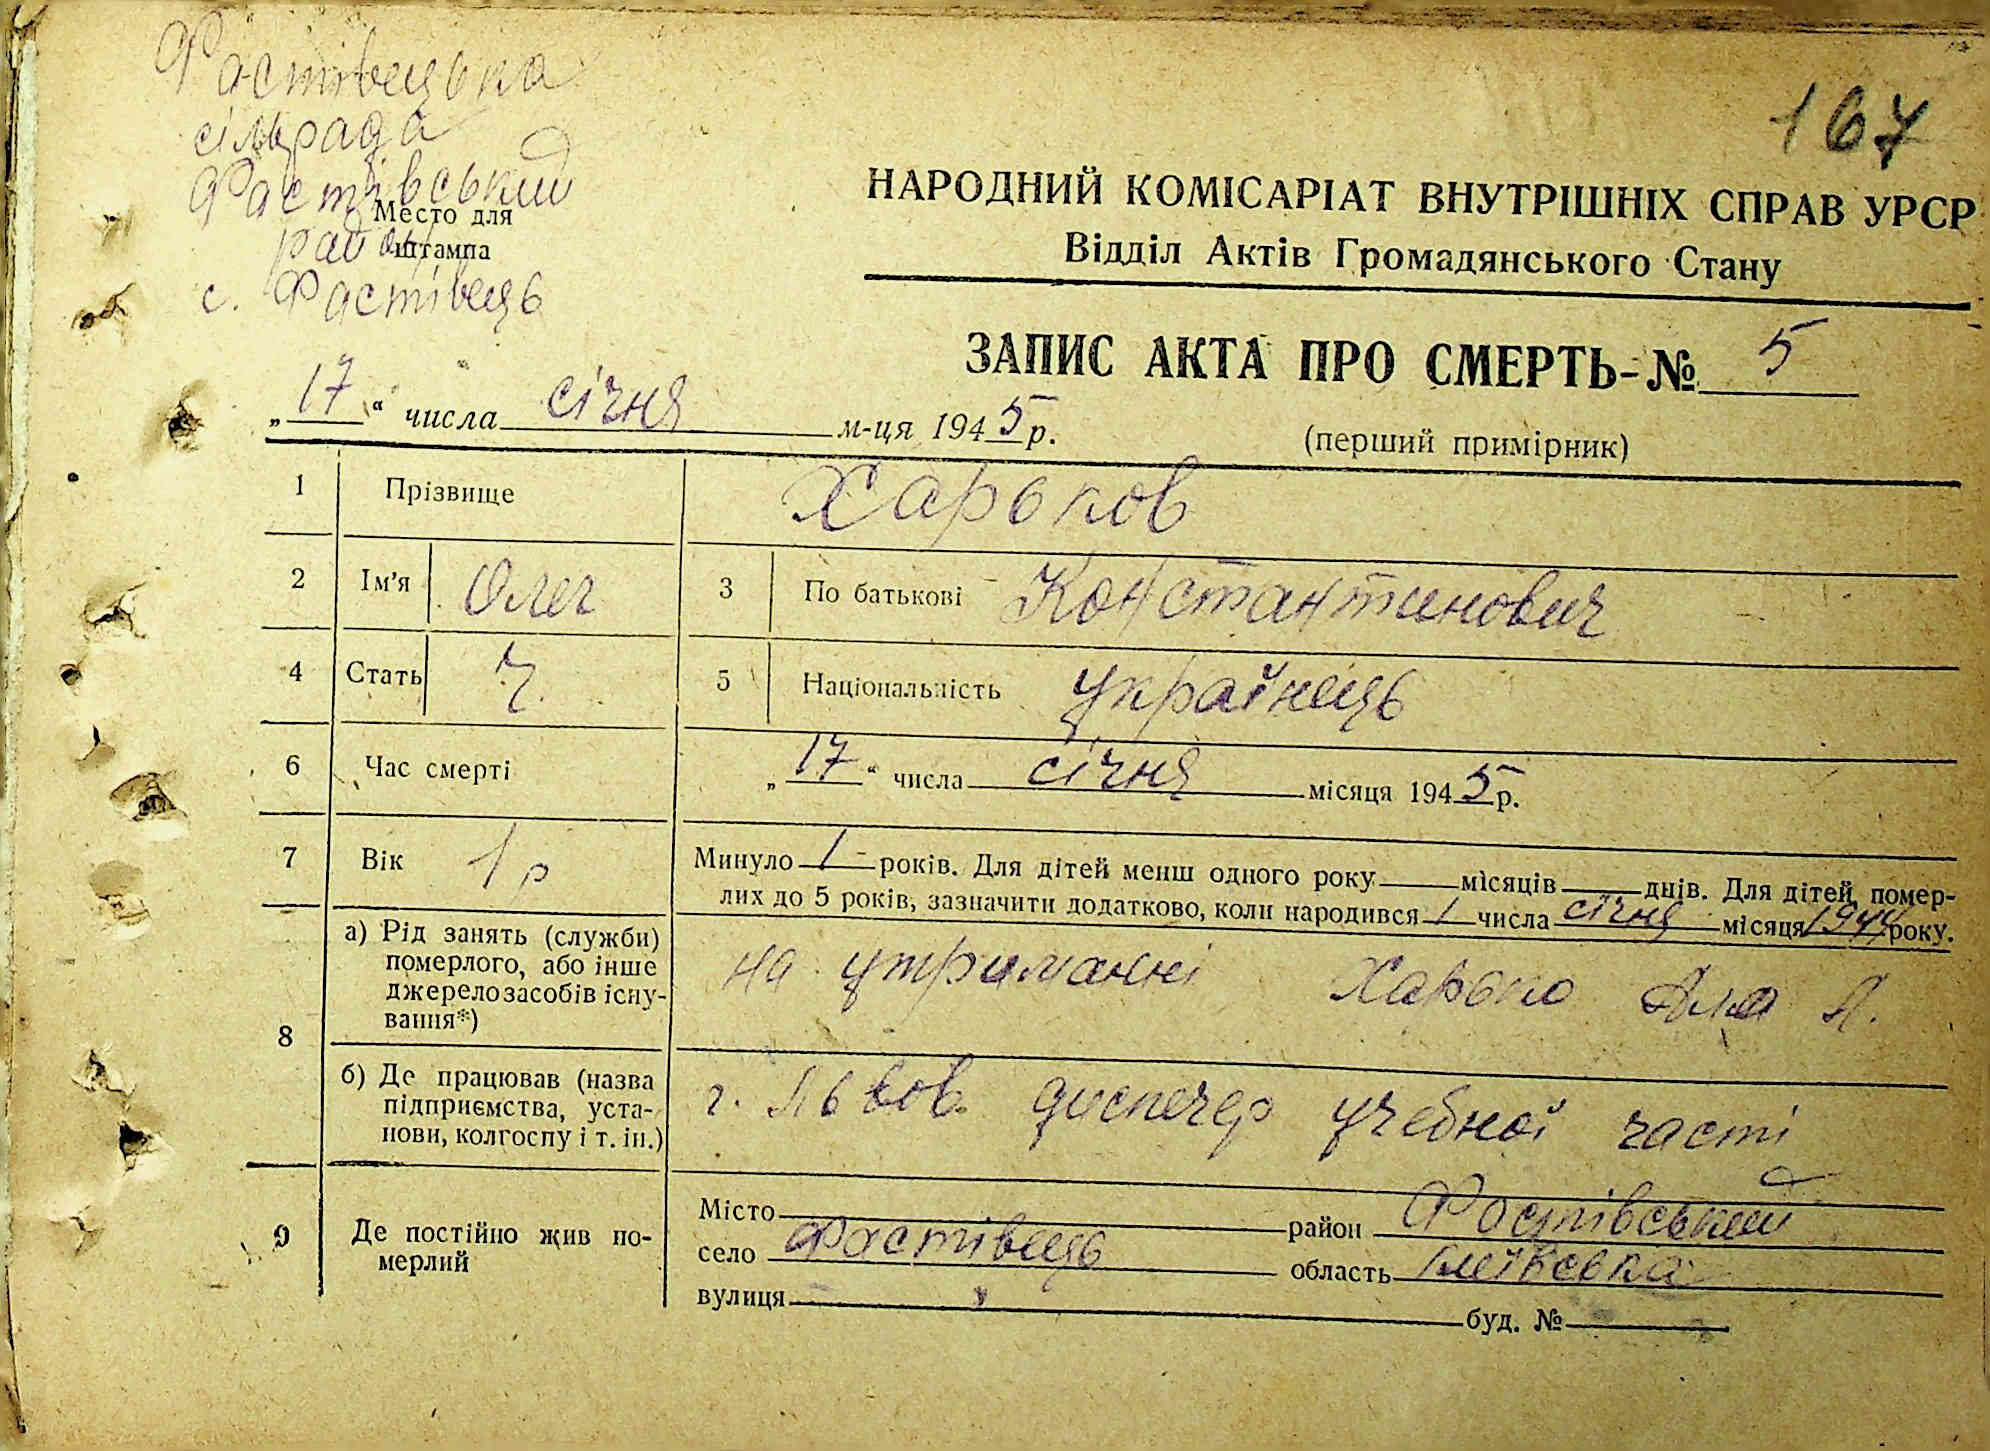 Фастівецька
сільрада
Фастівський
район
Место для
штампа
с. Фастівець
167
НАРОДНИЙ КОМІСАРІАТ ВНУТРІШНІХ СПРАВ УРСР
Відділ Актів Громадянського Стану
ЗАПИС АКТА ПРО СМЕРТЬ-№ 5
„17“ числа січня м-ця 1945 р.
(перший примірник)
1 Прізвище Харьков
2 Ім'я Олег 3 По батькові Константинович
4 Стать Ч. 5 Національність українець
6 Час смерті „17“ числа січня місяця 1945 р.
7 Вік 1 р Минуло 1 років. Для дітей менш одного року місяців днів. Для дітей, помер-
лих до 5 років, зазначити додатково, коли народився 1 числа січня місяця 1944 року.
8 а) Рід занять (служби)
померлого, або інше
джерело засобів існу-
вання*)
на утриманні Харько А.
б) Де працював (назва
підприємства, уста-
нови, колгоспу і т. ін.)
г. Львов. диспечер учебної часті
9 Де постійно жив по-
мерлий
Місто район Фастівський
село Фастівець область Київська
вулиця буд. №